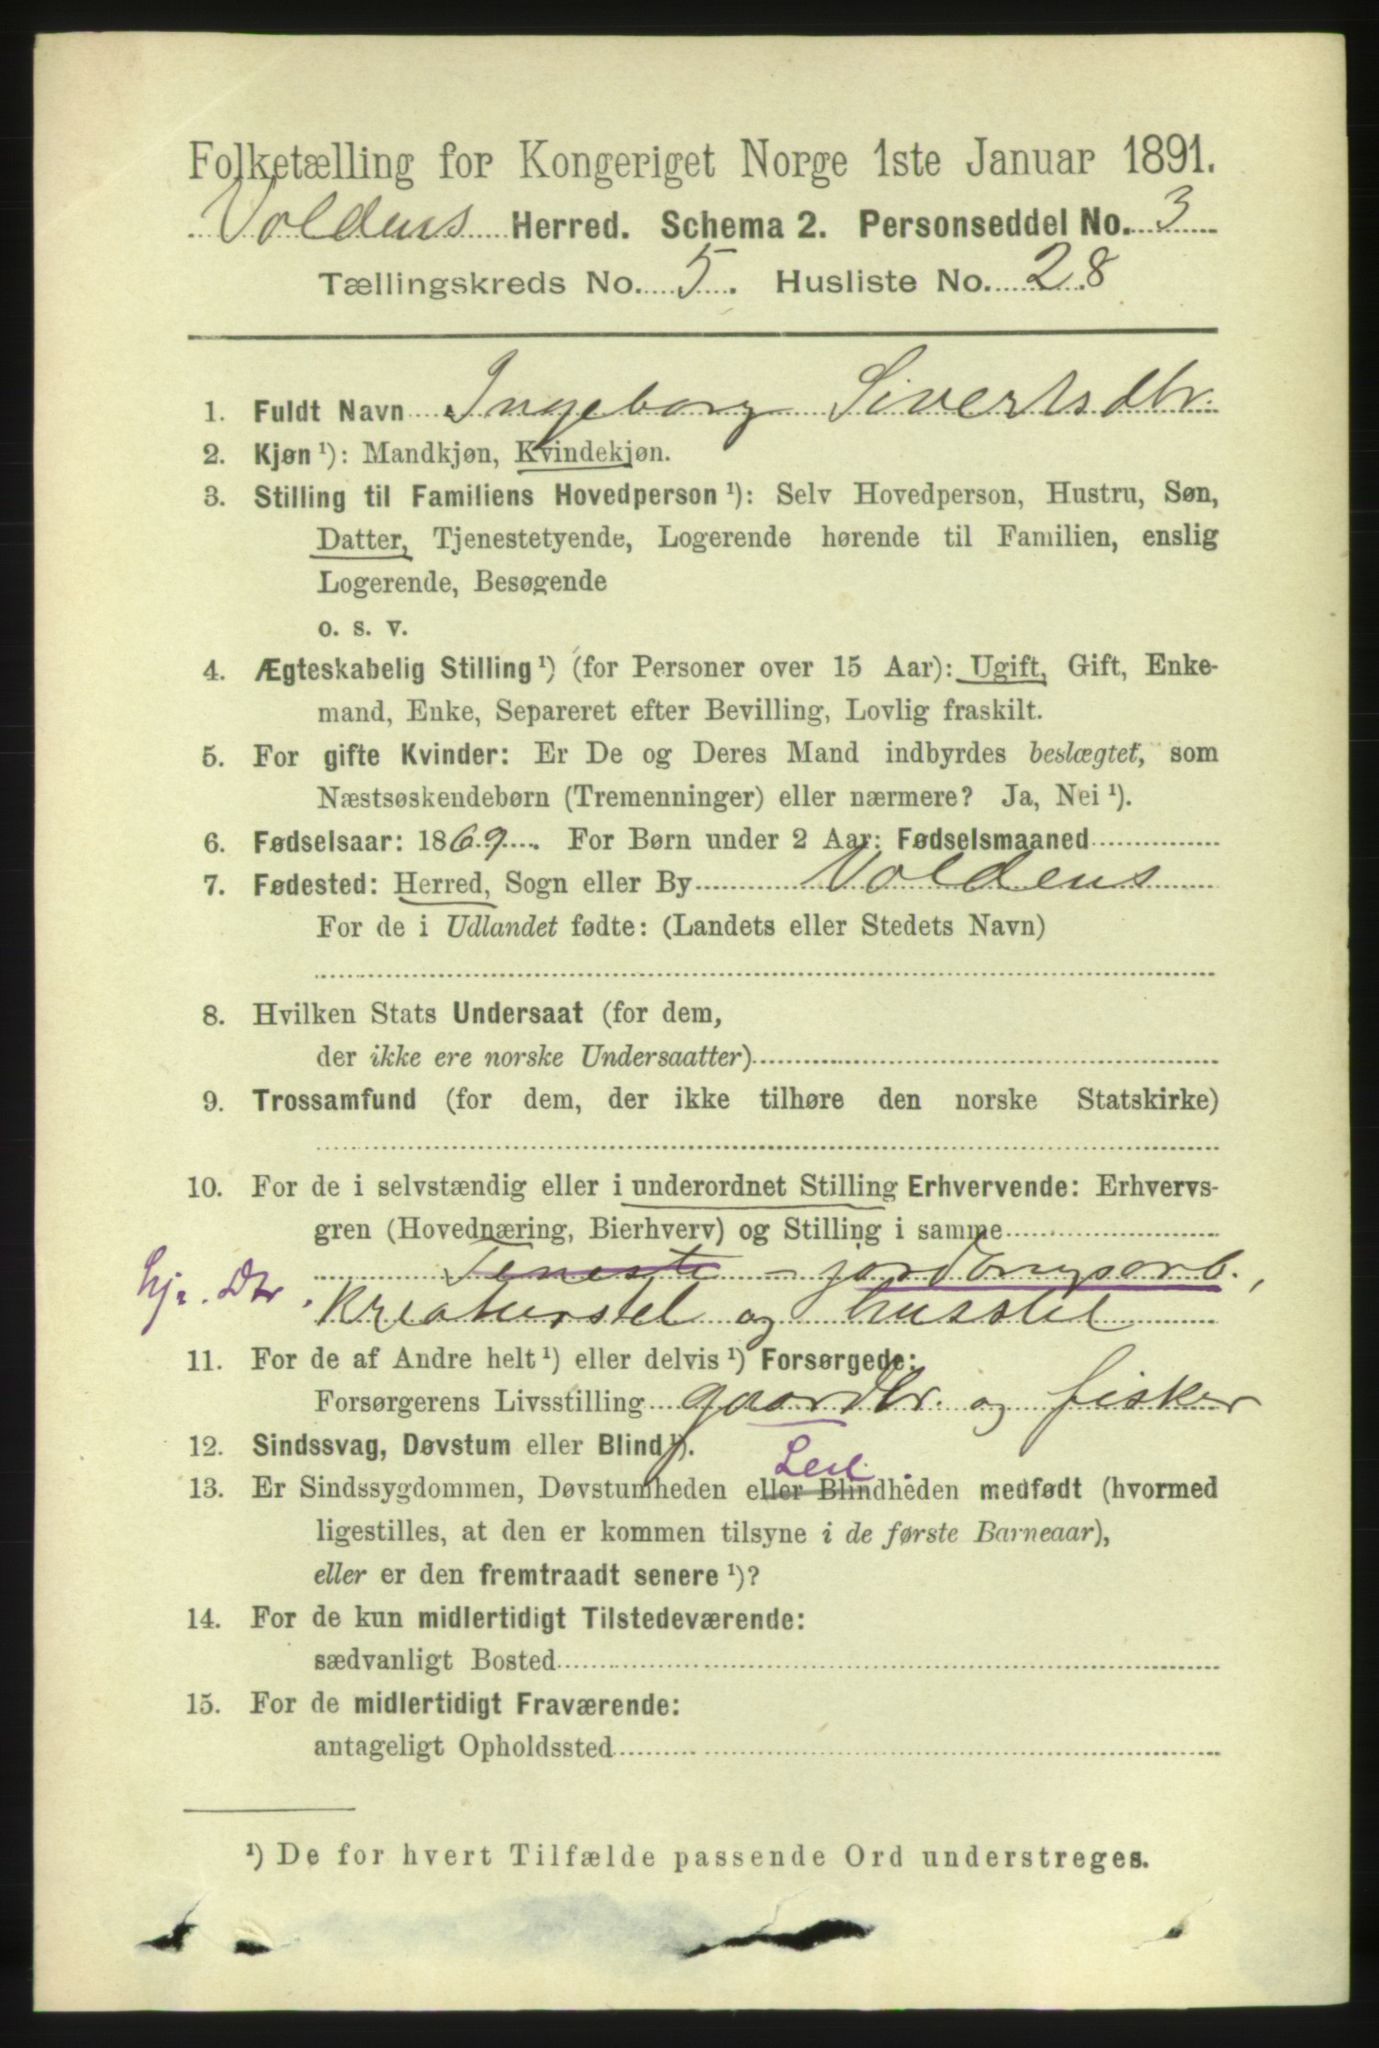 Folketælling for Kongeriget Norge 1ste Januar 1891.
Voldens Herred. Schema 2. Personseddel No. 3
Tællingskreds No. 5. Husliste No. 28
1. Fuldt Navn Ingeborg Sivertsdtr.
2. Kjøn ¹): Mandkjøn, Kvindekjøn.
3. Stilling til Familiens Hovedperson ¹): Selv Hovedperson, Hustru, Søn,
Datter, Tjenestetyende, Logerende hørende til Familien, enslig
Logerende, Besøgende
o. s. v.
4. Ægteskabelig Stilling ¹) (for Personer over 15 Aar): Ugift, Gift, Enke-
mand, Enke, Separeret efter Bevilling, Lovlig fraskilt.
5. For gifte Kvinder: Er De og Deres Mand indbyrdes beslægtet, som
Næstsøskendebørn (Tremenninger) eller nærmere? Ja, Nei ¹).
6. Fødselsaar: 1869. For Børn under 2 Aar: Fødselsmaaned
7. Fødested: Herred, Sogn eller By Voldens
For de i Udlandet fødte: (Landets eller Stedets Navn)
8. Hvilken Stats Undersaat (for dem,
der ikke ere norske Undersaatter)
9. Trossamfund (for dem, der ikke tilhøre den norske Statskirke)
10. For de i selvstændig eller i underordnet Stilling Erhvervende: Erhvervs-
gren (Hovednæring, Bierhverv) og Stilling i samme
hj. Dtr. Teneste - jordbrugsarb.,
Kreaturstel og husstel
11. For de af Andre helt ¹) eller delvis ¹) Forsørgede:
Forsørgerens Livsstilling gaardbr. og fisker
12. Sindssvag, Døvstum eller Blind ¹).
13. Er Sindssygdommen, Døvstumheden eller Blindheden medfødt (hvormed
ligestilles, at den er kommen tilsyne i de første Barneaar),
eller er den fremtraadt senere ¹)?
14. For de kun midlertidigt Tilstedeværende:
sædvanligt Bosted
15. For de midlertidigt Fraværende:
antageligt Opholdssted
¹) De for hvert Tilfælde passende Ord understreges.